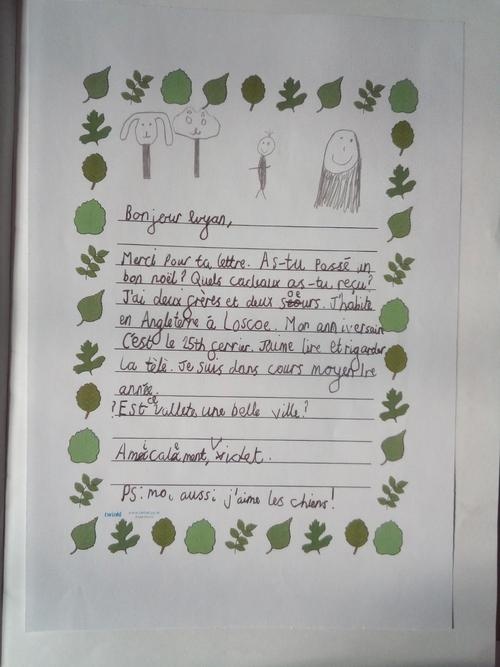 Bonjour Evyan,
Merci Pour ta lettre. As-tu passé un
bon noël? Quels cadeaux as-tu reçu?
J'ai deux frères et deux soeurs. J'habite
en Angleterre à Loscoe. Mon anniversaire
C'est le 25th ferrier. J'aime lire et rigarder
La télé. Je suis dans cours moyen 1re
année.
?Est ce Vallets une belle ville?
Amècalèment, Violet.
PS: moi, aussi j'aime les chiens!
twinkl